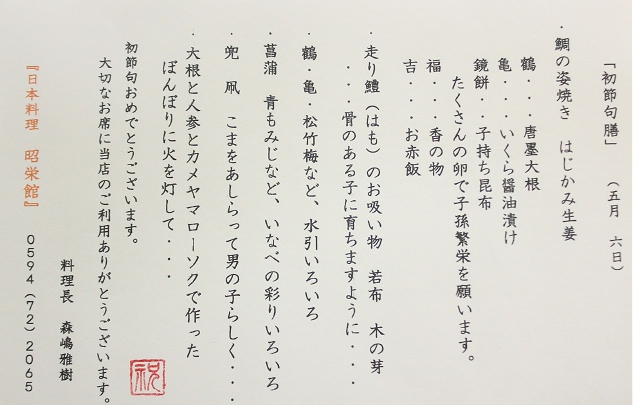 「初節句膳」　（五月　六日）
・鯛の姿焼き　はじかみ生姜
鶴・・・唐墨大根
亀・・・いくら醤油漬け
鏡餅・・子持ち昆布
たくさんの卵で子孫繁栄を願います。
福・・・香の物
吉・・・お赤飯
・走り鱧（はも）のお吸い物　若布　木の芽
・・・骨のある子に育ちますように・・・・
・鶴・亀・松竹梅など、水引いろいろ
・菖蒲　青もみじなど、いなべの彩りいろいろ
・兜　凧　こまをあしらって男の子らしく・・・・
・大根と人参とカメヤマローソクで作った
ぼんぼりに火を灯して・・・
初節句おめでとうございます。
大切なお席に当店のご利用ありがとうございます。
料理長　森嶋雅樹
『日本料理　昭栄館』　0594（72）2065
祝